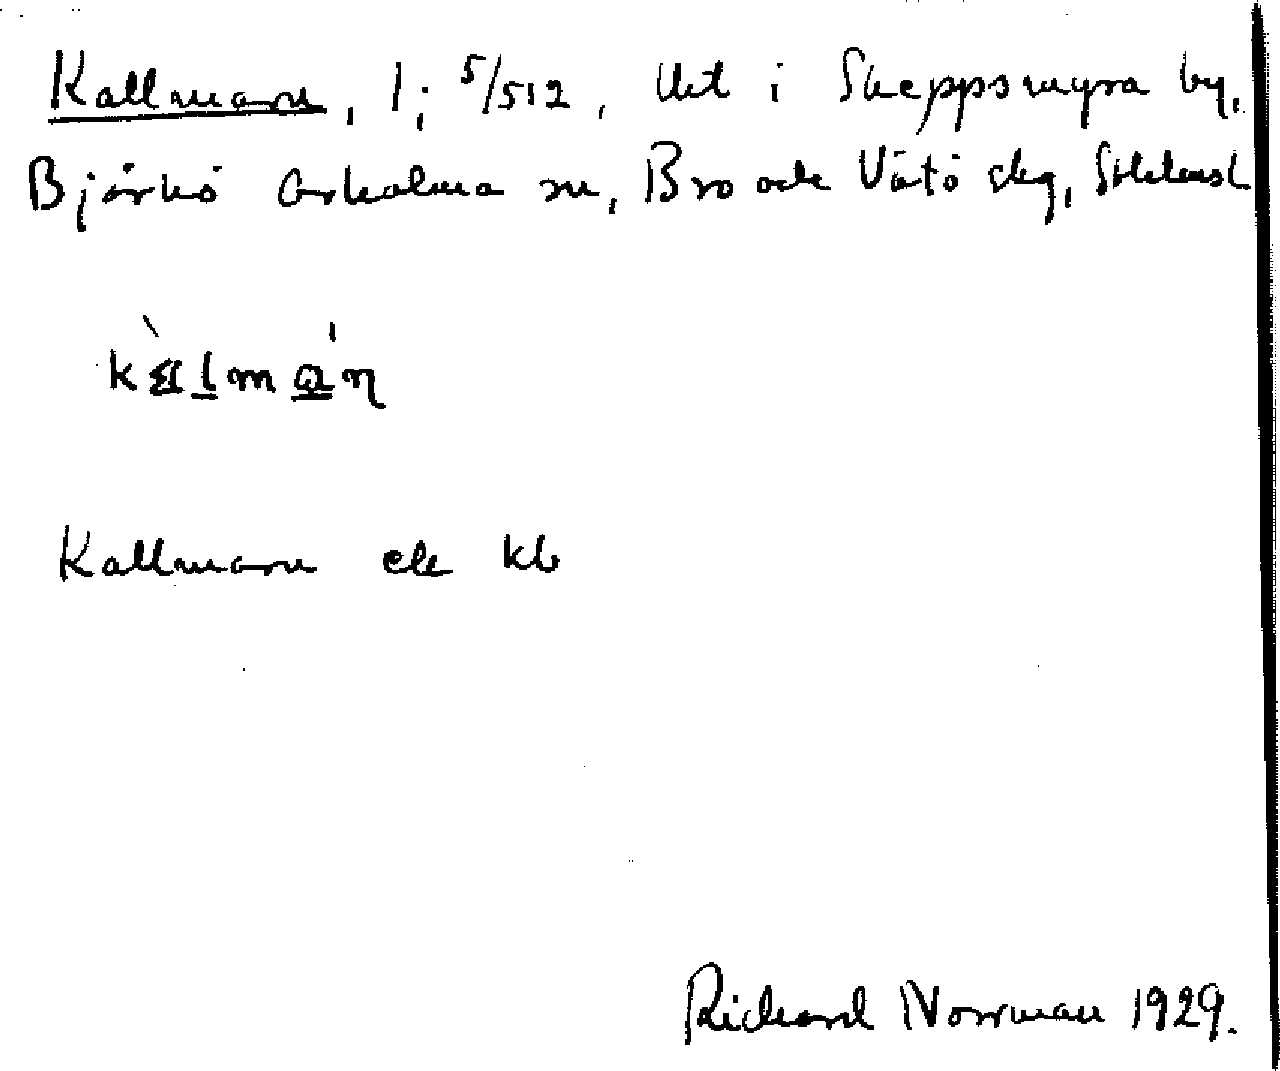 Kallmann, 1; 5/512, Utt i Skeppsmyra by,
Björkö Arholma sn, Bro och Vätö skg, Sthlms l
Kallmann ek kb
Richard Norrman 1929.